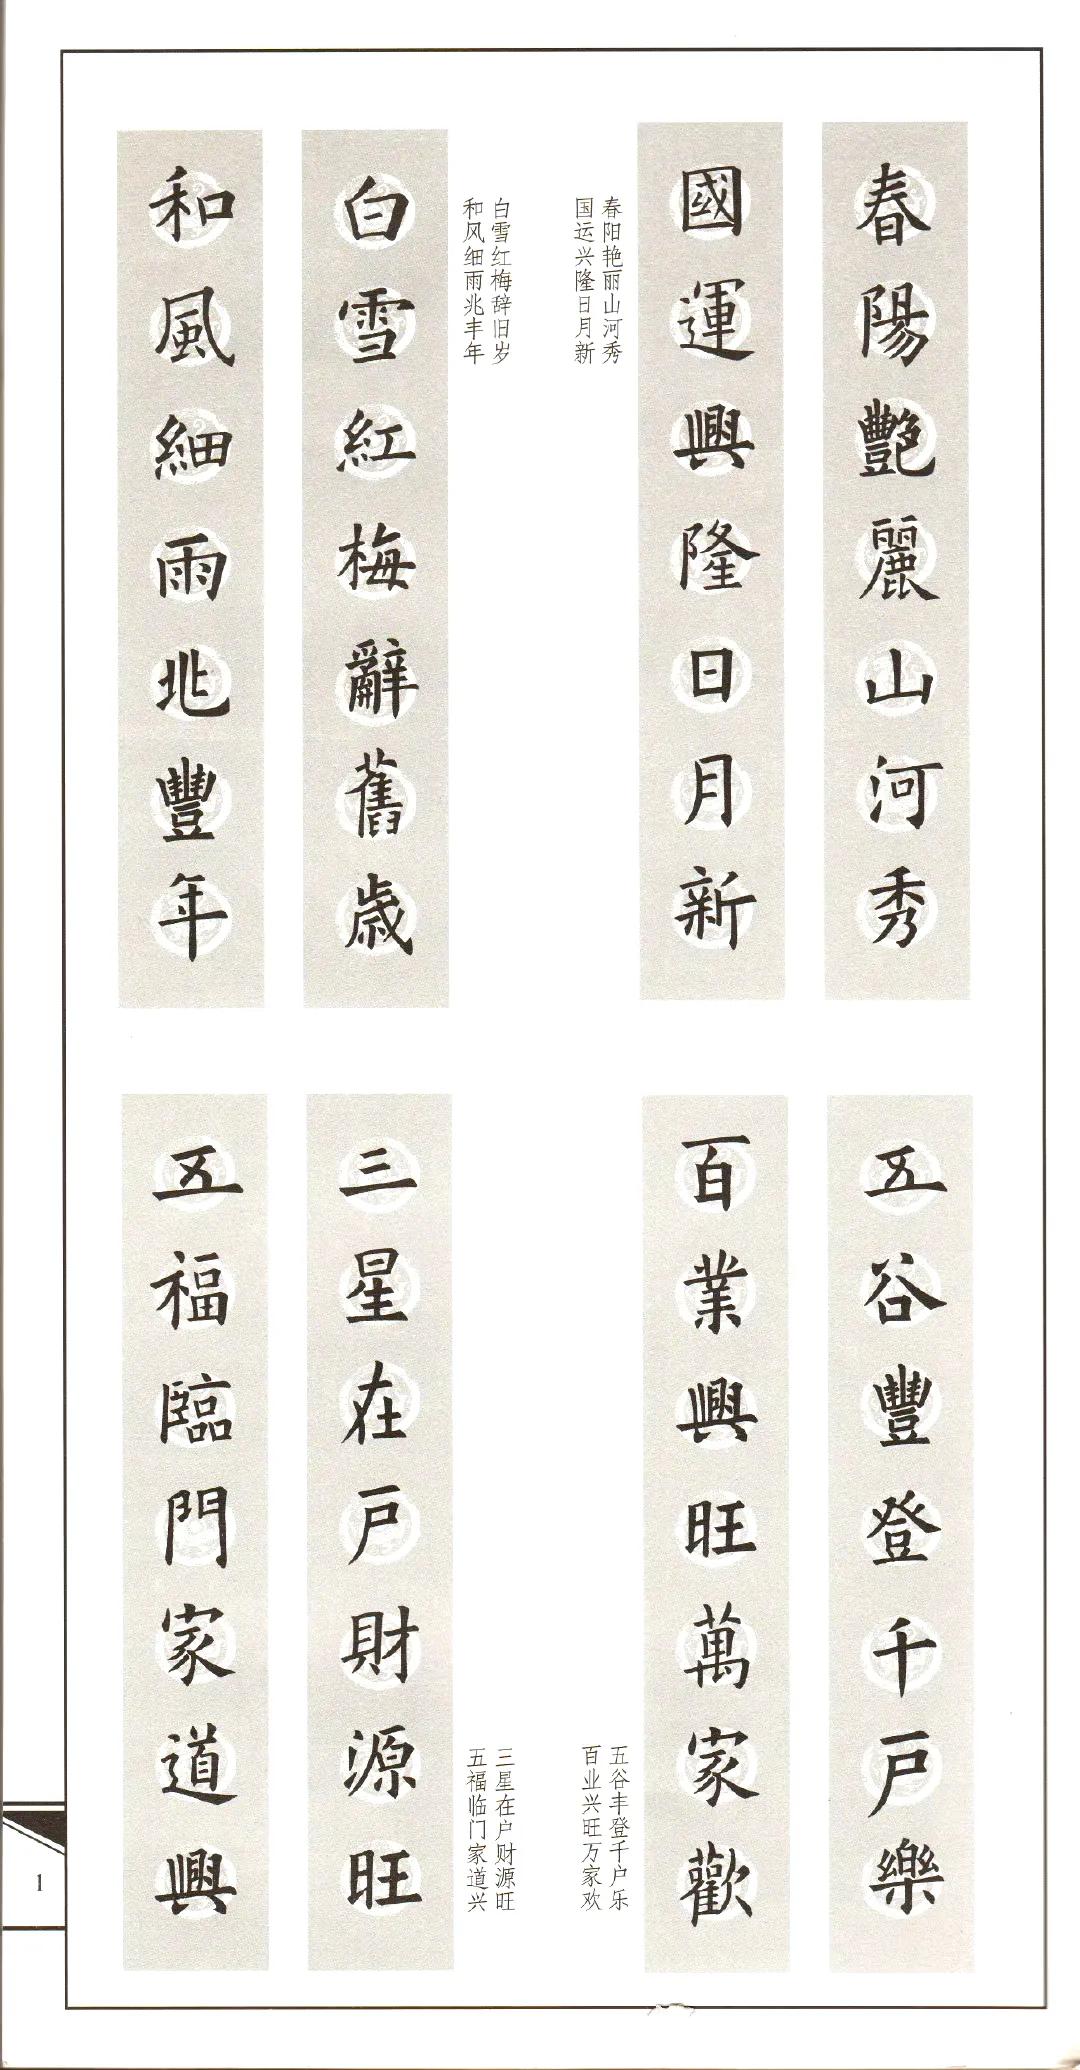 春陽艷麗山河秀
國運興隆日月新
春阳艳丽山河秀
国运兴隆日月新
白雪紅梅辭舊歲
和風細雨兆豐年
白雪红梅辞旧岁
和风细雨兆丰年
五谷豐登千戶樂
百業興旺萬家歡
五谷丰登千户乐
百业兴旺万家欢
三星在戶財源旺
五福臨門家道興
三星在户财源旺
五福临门家道兴
1